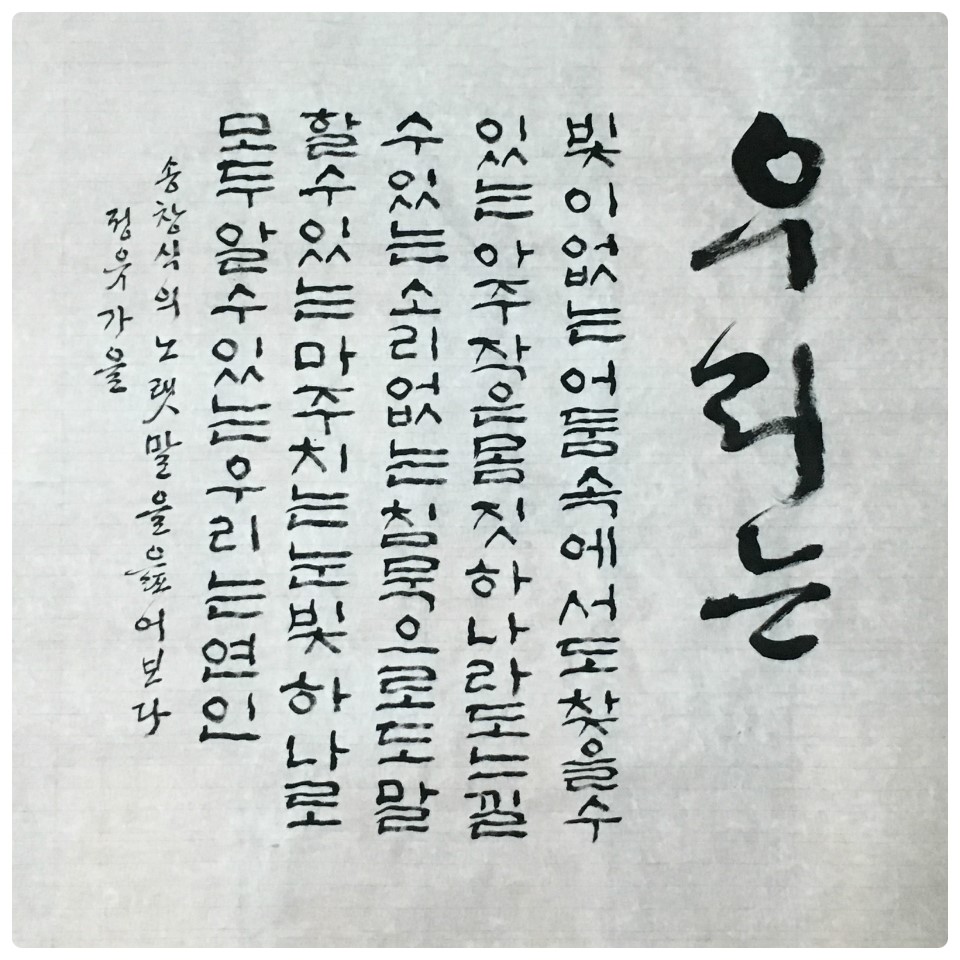 우리는
빛이없는어둠속에서도찾을수
있는아주작은몸짓하나라도느낄
수있는소리없는침묵으로도말
할수있는마주치는눈빛하나로
모두알수있는우리는연인
송창식의노랫말을읊어보다
정유가을